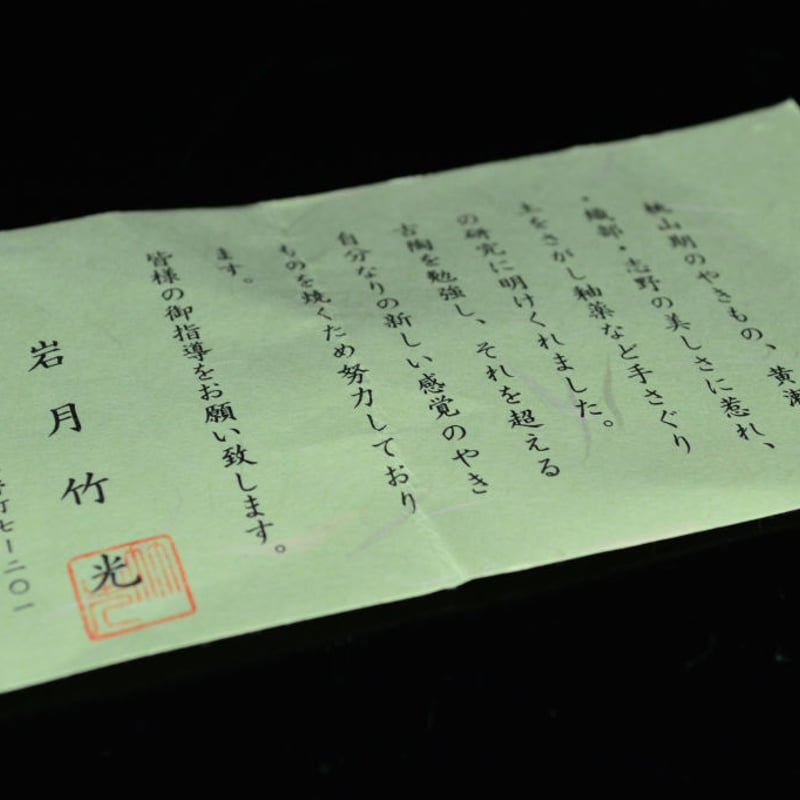 桃山期のやきもの、黄瀬
・織部・志野の美しさに惹れ、
土をさがし釉薬など手さぐり
の研究に明けくれました。
古陶を勉強し、それを超える
自分なりの新しい感覚のやき
ものを焼くため努力しており
ます。
皆様の御指導をお願い致します。
岩月竹光
町七ー二〇一